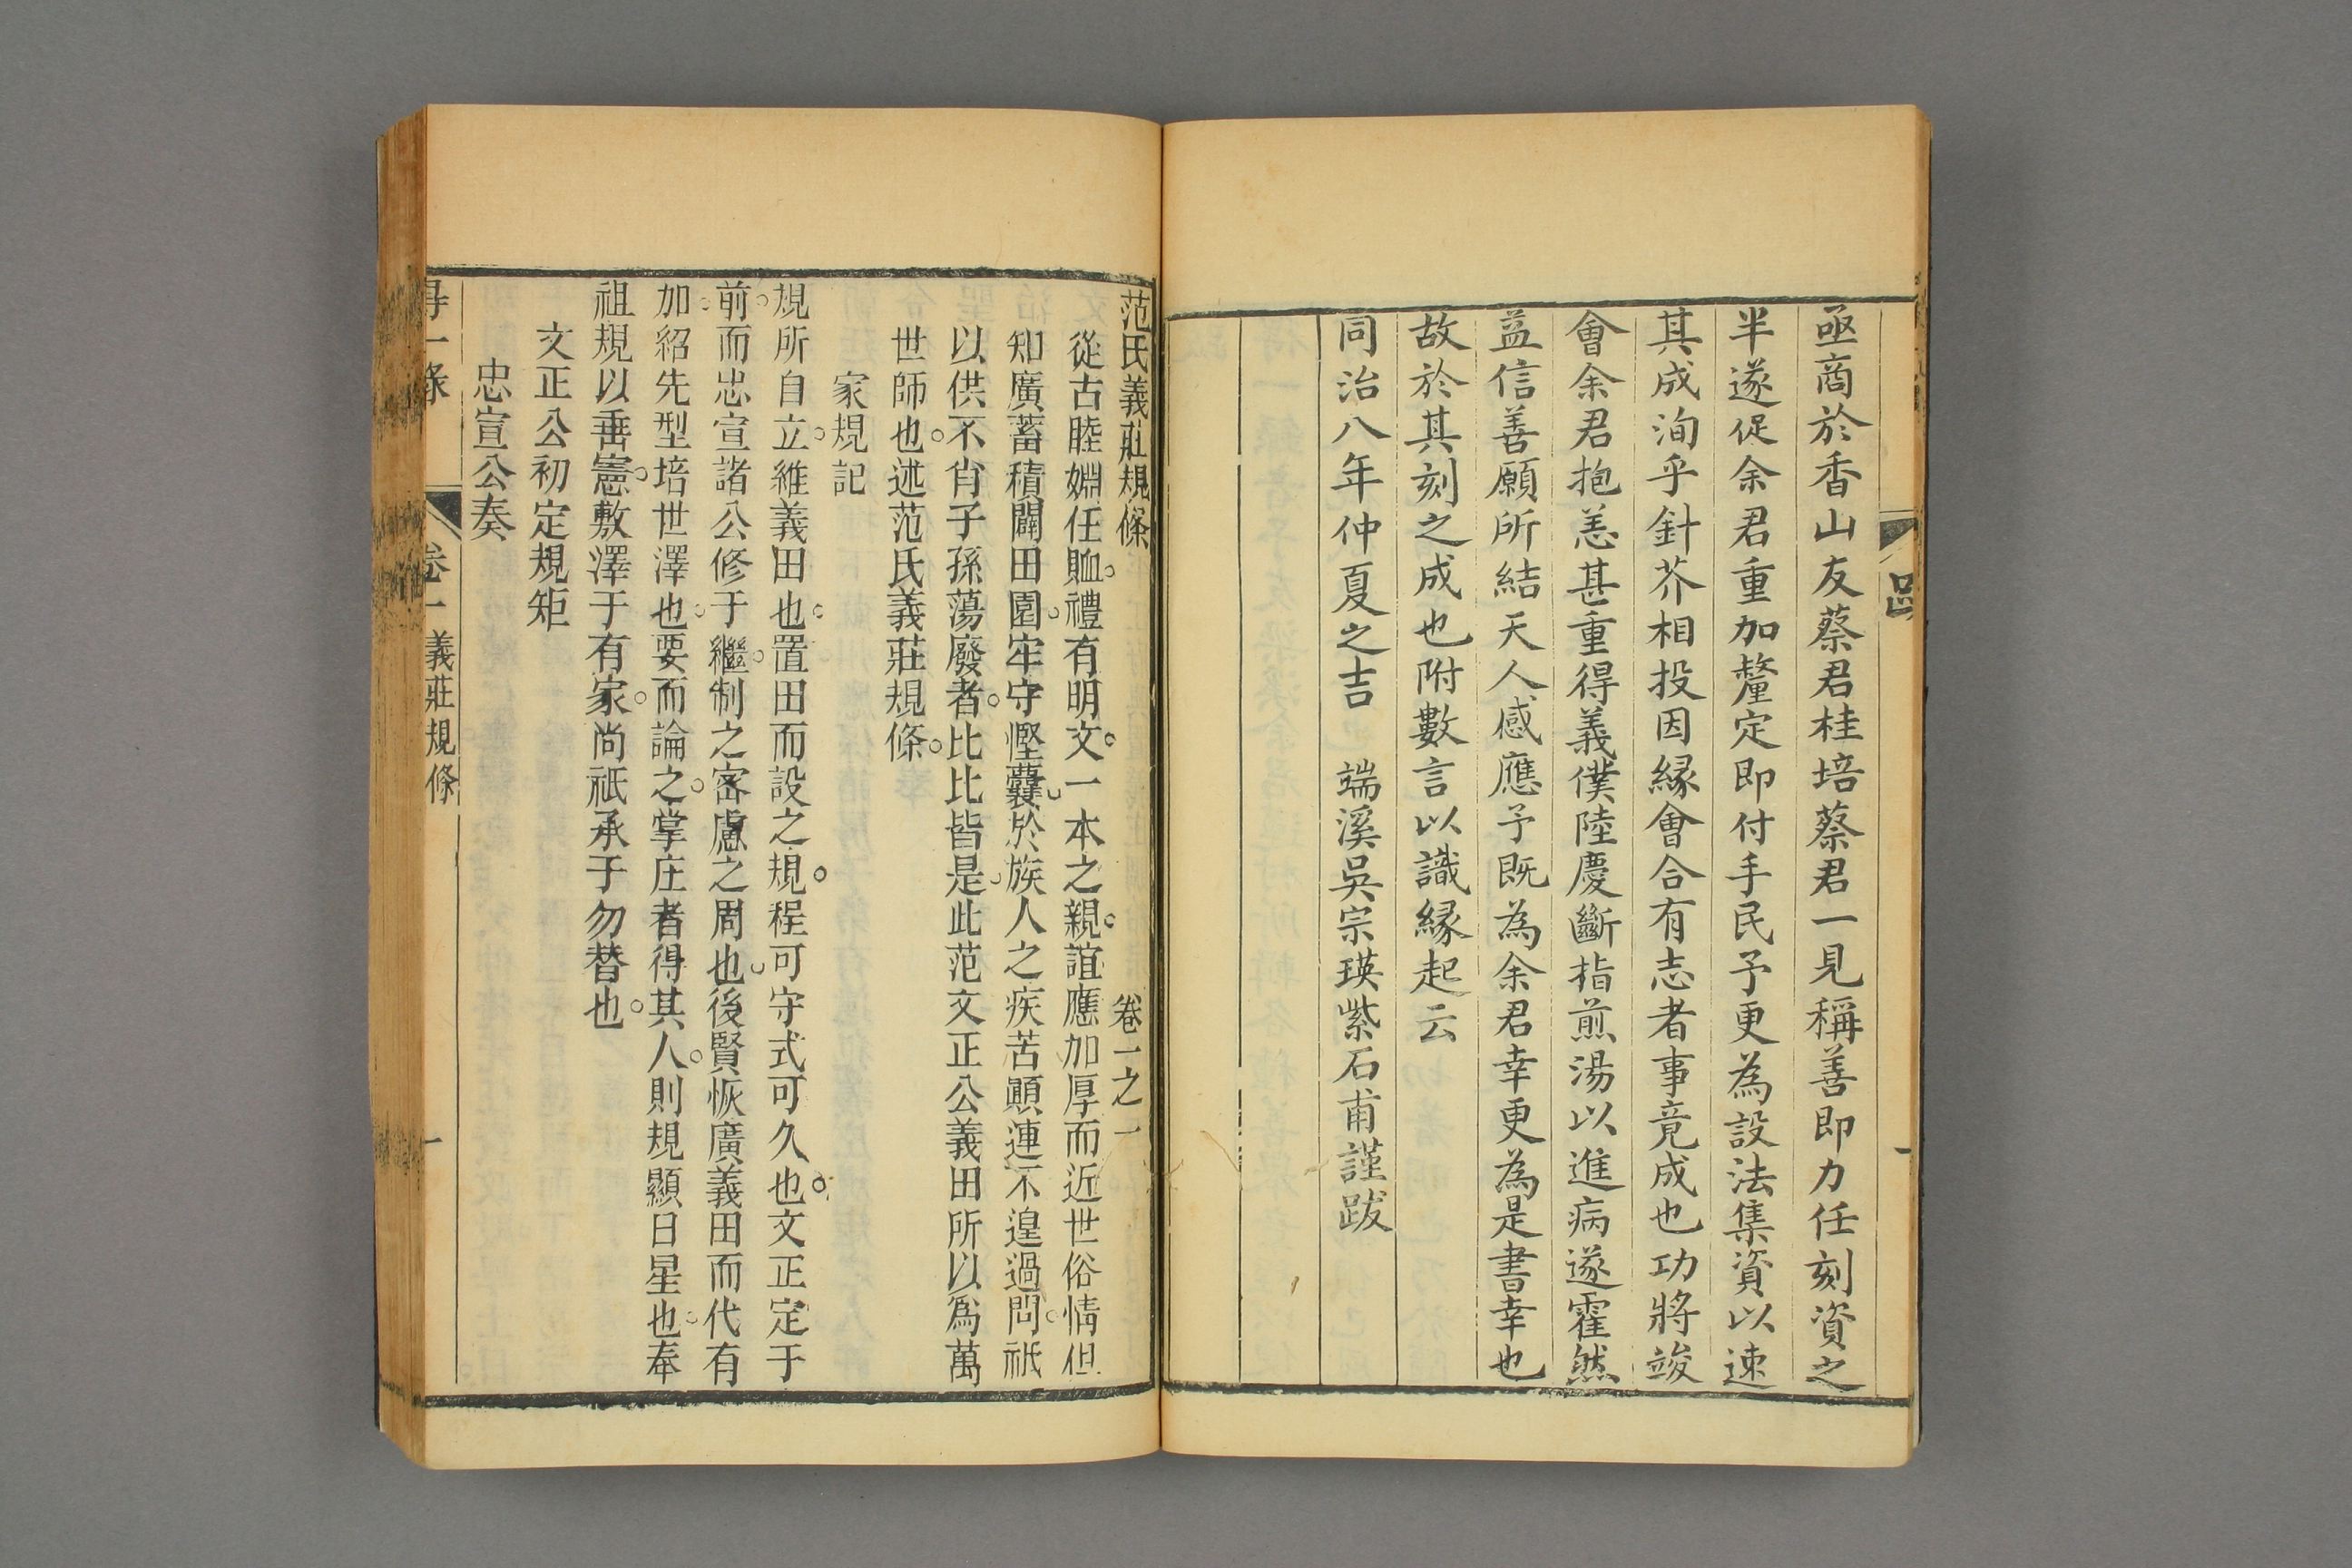 亟商於香山友蔡君桂培蔡君一見稱善即力任刻資之
半遂促余君重加釐定即付手民予更為設法集資以速
其成洵乎針芥相投因緣會合有志者事竟成也功將竣
會余君抱恙甚重得義僕陸慶斷指煎湯以進病遂霍然
益信善願所結天人感應予既為余君幸更為是書幸也
故於其刻之成也附數言以識緣起云
同治八年仲夏之吉 端溪吳宗瑛紫石甫謹跋
范氏義莊規條 卷一之一
從古睦婣任賉。禮有明文。一本之親。誼應加厚而近世俗情但
知廣蓄積闢田園。牢守慳囊。於族人之疾苦顚連不遑過問。祇
以供不肖子孫蕩廢者。比比皆是。此范文正公義田所以爲萬
世師也。述范氏義莊規條。
家規記
規所自立。維義田也。置田而設之規。程可守式可久也。文正定于
前。而忠宣諸公修于繼。制之密慮之周也。後賢恢廣義田而代有
加。紹先型培世澤也。要而論之。掌庄者得其人。則規顯日星也。奉
祖規以垂憲。敷澤于有家。尚祇承于勿替也。
文正公初定規矩
忠宣公奏
得一錄 卷一 義莊規條 一